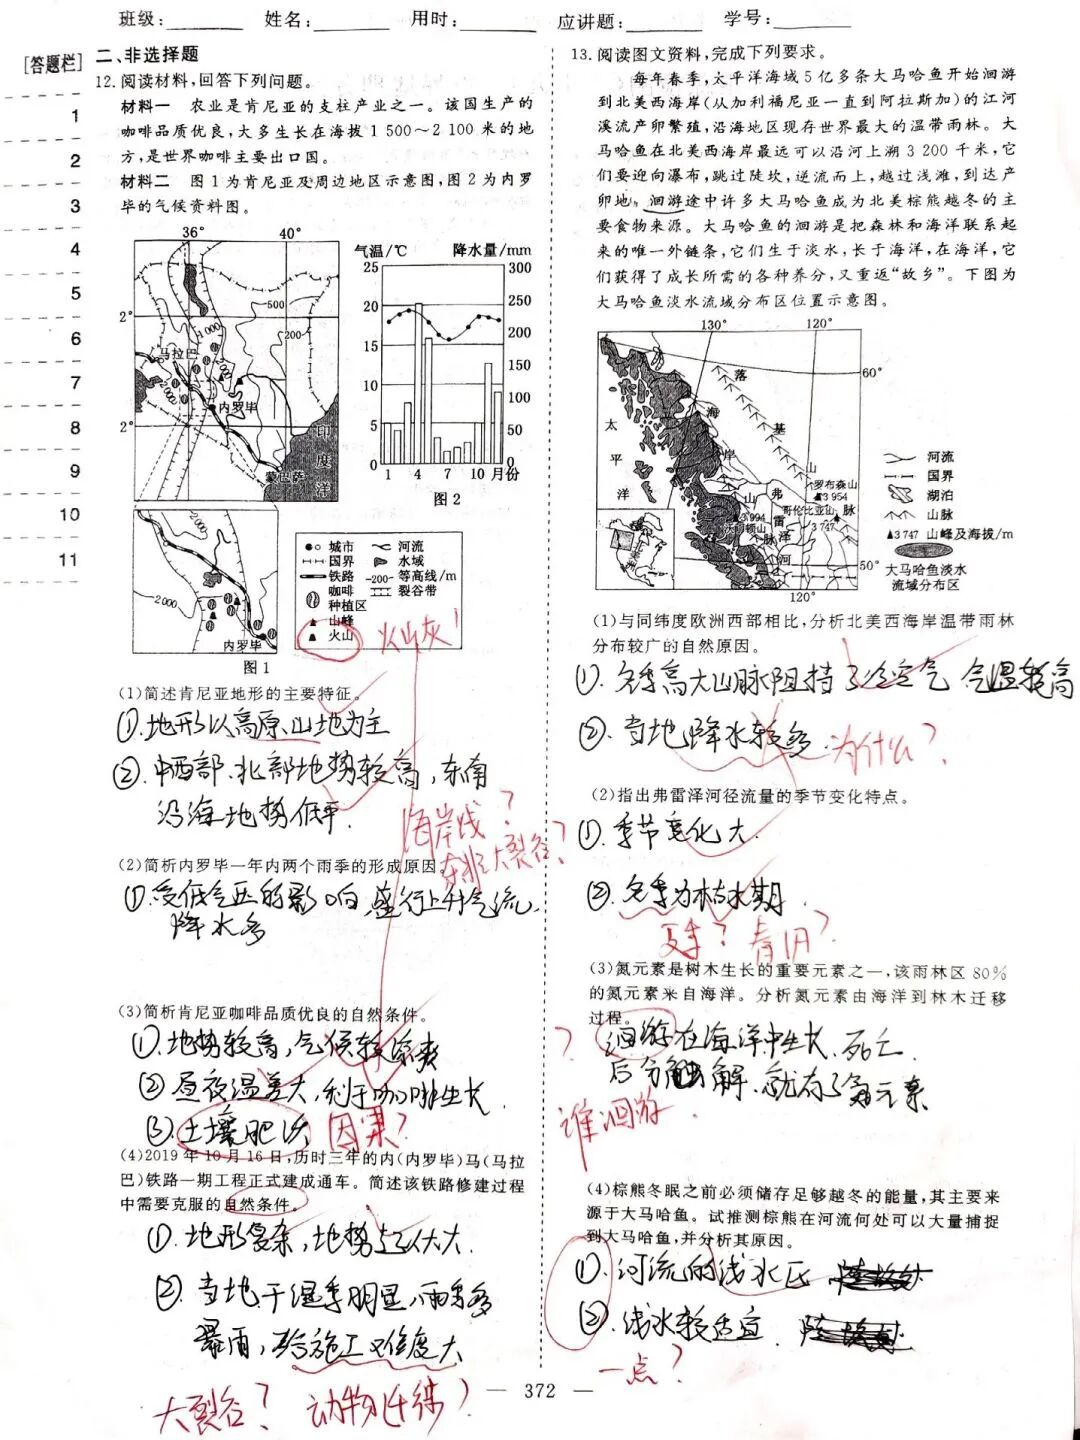 班级: 姓名: 用时: 应讲题: 学号:
[答题栏]
1
2
3
4
5
6
7
8
9
10
11
二、非选择题
12.阅读材料,回答下列问题。
材料一 农业是肯尼亚的支柱产业之一。该国生产的
咖啡品质优良,大多生长在海拔1 500～2 100 米的地
方,是世界咖啡主要出口国。
材料二 图1为肯尼亚及周边地区示意图,图2为内罗
毕的气候资料图。
36° 40°
2°
2°
500
200
1 000
2 000
2 000
马拉巴
内罗毕
蒙巴萨
印度洋
2 000
2 000
内罗毕
图1
气温/℃ 降水量/mm
25 300
20 250
200
15 150
10 100
5 50
0 0
1 4 7 10 月份
图2
城市 河流
国界 水域
铁路 -200- 等高线/m
咖啡种植区 裂谷带
山峰
火山
火山灰!
(1)简述肯尼亚地形的主要特征。
①.地形以高原、山地为主
②.中西部、北部地势较高,东南
沿海地势低平.
海岸线?
东非大裂谷?
(2)简析内罗毕一年内两个雨季的形成原因
①.受低气压的影响,盛行上升气流
降水多
(3)简析肯尼亚咖啡品质优良的自然条件。
①.地势较高,气候较凉爽
②昼夜温差大,利于咖啡生长.
③.土壤肥沃 因果?
(4)2019年10月16日,历时三年的内(内罗毕)马(马拉
巴)铁路一期工程正式建成通车。简述该铁路修建过程
中需要克服的自然条件。
①.地形复杂,地势起伏大.
②.当地干湿季明显,雨季多
暴雨,给施工难度大
大裂谷? 动物迁徙?
13.阅读图文资料,完成下列要求。
每年春季,太平洋海域5亿多条大马哈鱼开始洄游
到北美西海岸(从加利福尼亚一直到阿拉斯加)的江河
溪流产卵繁殖,沿海地区现存世界最大的温带雨林。大
马哈鱼在北美西海岸最远可以沿河上溯3 200千米,它
们要迎向瀑布,跳过陡坎,逆流而上,越过浅滩,到达产
卵地。洄游途中许多大马哈鱼成为北美棕熊越冬的主
要食物来源。大马哈鱼的洄游是把森林和海洋联系起
来的唯一外链条,它们生于淡水,长于海洋,在海洋,它
们获得了成长所需的各种养分,又重返“故乡”。下图为
大马哈鱼淡水流域分布区位置示意图。
130° 120°
60°
50°
120°
太平洋
海岸山脉
落基山脉
弗雷泽河
罗布森山
3 954
哥伦比亚山
3 747
3 994
河流
国界
湖泊
山脉
▲3 747 山峰及海拔/m
大马哈鱼淡水
流域分布区
(1)与同纬度欧洲西部相比,分析北美西海岸温带雨林
分布较广的自然原因。
①.冬季高大山脉阻挡了冷空气 气温较高
②.当地降水较多. 为什么?
(2)指出弗雷泽河径流量的季节变化特点。
①.季节变化大.
②.冬季为枯水期.
夏季? 春汛?
(3)氮元素是树木生长的重要元素之一,该雨林区80%
的氮元素来自海洋。分析氮元素由海洋到林木迁移
过程。
? 洄游在海洋中生长、死亡.
后分解.就有了氮元素
谁洄游.
(4)棕熊冬眠之前必须储存足够越冬的能量,其主要来
源于大马哈鱼。试推测棕熊在河流何处可以大量捕捉
到大马哈鱼,并分析其原因。
①.河流的浅水区
②.浅水较适宜.
一点?
— 372 —